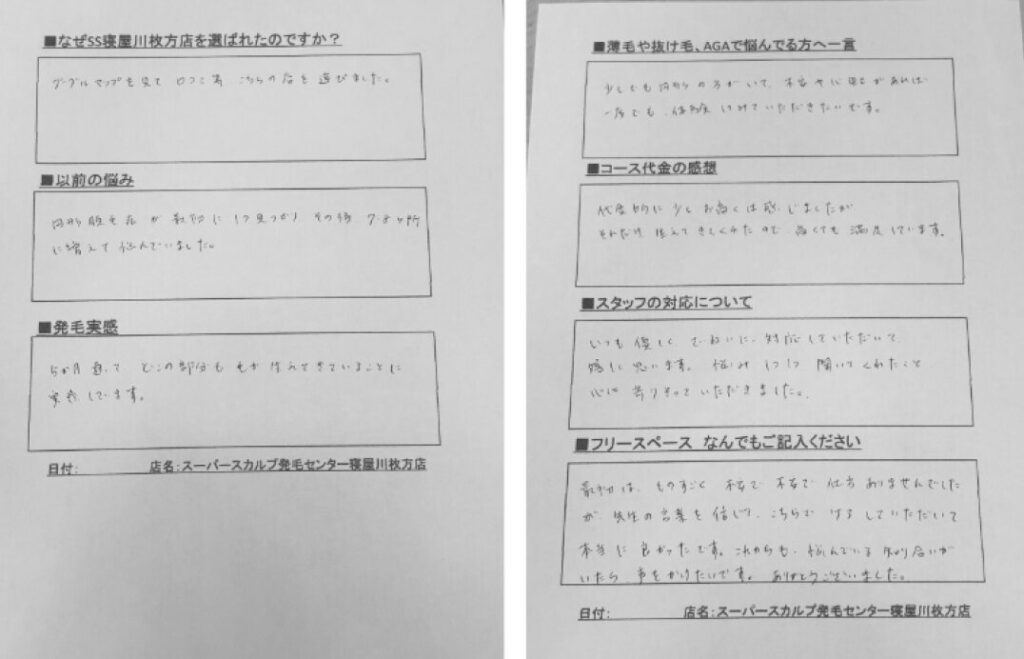 ■なぜSS寝屋川枚方店を選ばれたのですか？
グーグルマップを見て 口コミ こちらの店を選びました。
■以前の悩み
円形脱毛症が 最初に 1つ見つかり その後 ヶ所
に増えて 悩んでいました。
■発毛実感
5か月 通って どこの部分も 毛が 生えてきていることに
実感しています。
日付： 店名：スーパースカルプ発毛センター寝屋川枚方店
■薄毛や抜け毛、AGAで悩んでる方へ一言
少しでも円形の方がいて、不安 があれば
一度でも、体験 してみていただきたいです。
■コース代金の感想
的に 少し お高くは感じましたが
それだけ 生えてきてくれたので 高くても 満足しています。
■スタッフの対応について
いつも 優しく ていねいに 対応していただいて
嬉しく思います。 悩み 1つ1つ 聞いてくれたこと
心に 寄りそって いただきました。
■フリースペース なんでもご記入ください
最初は、ものすごく 不安で 不安で 仕方ありませんでした
が、先生の言葉を信じて、こちらで していただいて
本当に 良かったです。これからも、悩んでいる 知り合いが
いたら、声をかけたいです。 ありがとうございました。
日付： 店名：スーパースカルプ発毛センター寝屋川枚方店